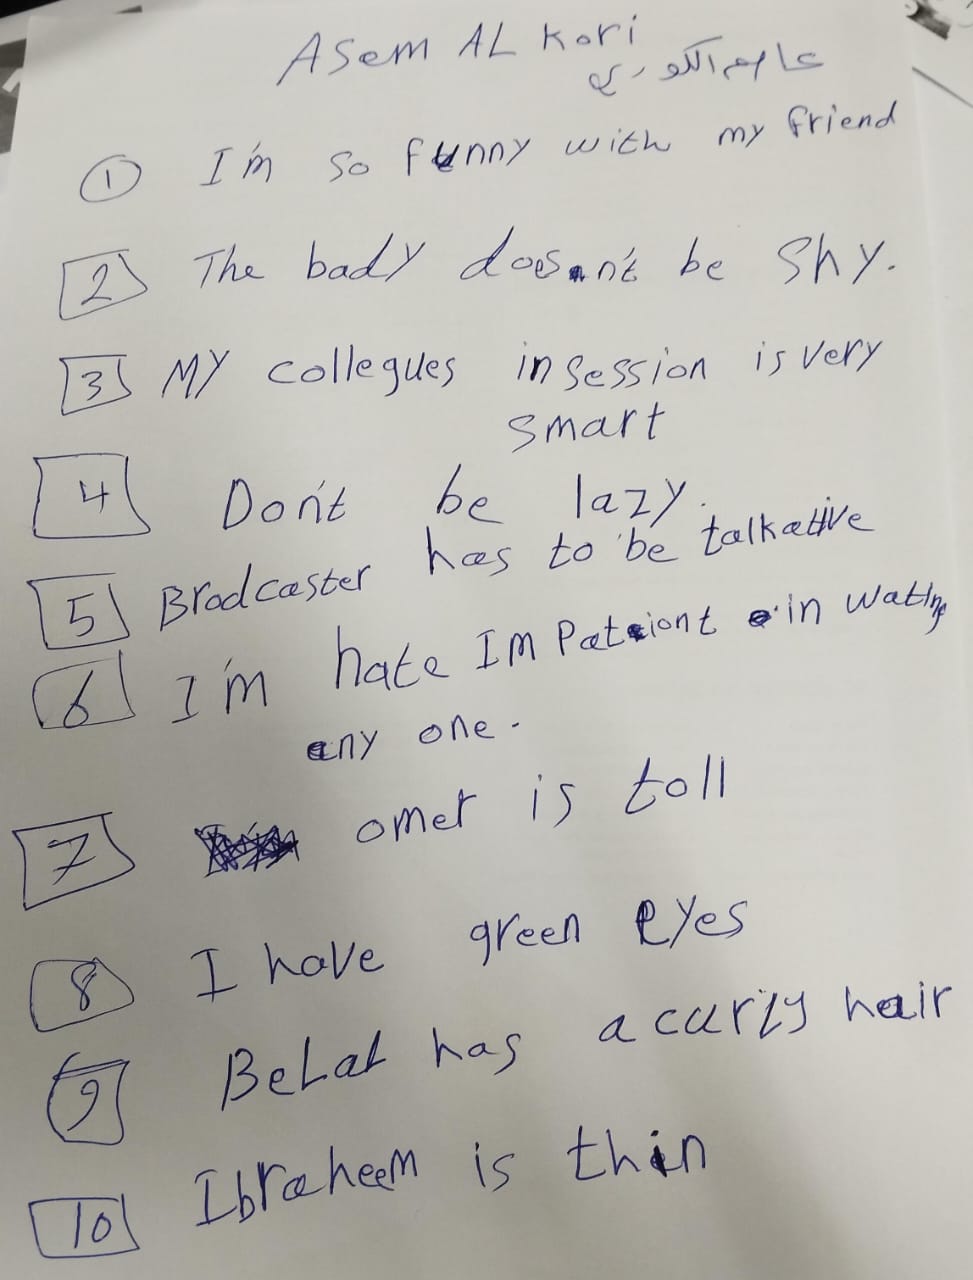 Asem AL Kori
عاصم الكوري
1 I'm so funny with my friend
2 The bady doesn't be shy.
3 MY collegues in session is very
smart
4 Don't be lazy.
5 Brodcaster has to be talkative
6 I'm hate Impationt in wating
any one.
7 omer is toll
8 I have green eyes
9 Belal has a curly hair
10 Ibraheem is thin